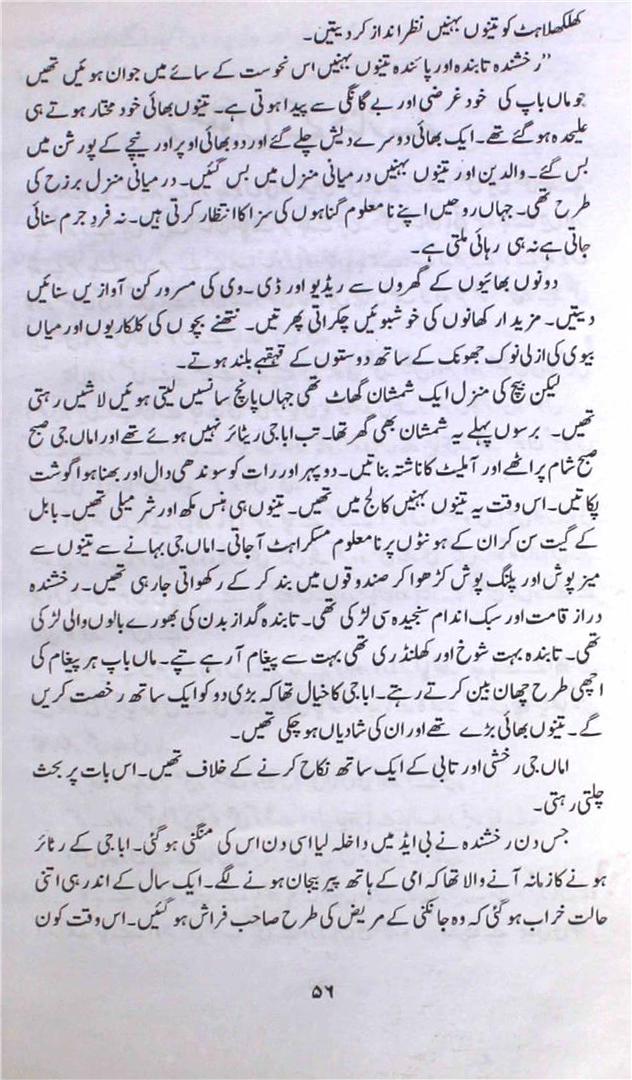 کھلکھلاہٹ کو تینوں بہنیں نظر انداز کر دیتیں۔
”رخشندہ تابندہ اور پائندہ تینوں بہنیں اس نحوست کے سائے میں جوان ہوئیں تھیں
جو ماں باپ کی خود غرضی اور بے گانگی سے پیدا ہوتی ہے۔ تینوں بھائی خود مختار ہوتے ہی
علیحدہ ہو گئے تھے۔ ایک بھائی دوسرے دیش چلے گئے اور دو بھائی اوپر اور نیچے کے پورشن میں
بس گئے۔ والدین اور تینوں بہنیں درمیانی منزل میں بس گئیں۔ درمیانی منزل برزح کی
طرح تھی۔ جہاں روحیں اپنے نا معلوم گناہوں کی سزا کا انتظار کرتی ہیں۔ نہ فردِ جرم سنائی
جاتی ہے نہ ہی رہائی ملتی ہے۔
دونوں بھائیوں کے گھروں سے ریڈیو اور ٹی۔وی کی مسرور کن آوازیں سنائیں
دیتیں۔ مزیدار کھانوں کی خوشبوئیں چکراتی پھرتیں۔ ننھے بچوں کی کلکاریوں اور میاں
بیوی کی ازلی نوک جھونک کے ساتھ دوستوں کے قہقہے بلند ہوتے۔
لیکن بیچ کی منزل ایک شمشان گھاٹ تھی جہاں پانچ سانسیں لیتی ہوئیں لاشیں رہتی
تھیں۔ برسوں پہلے یہ شمشان بھی گھر تھا۔ تب ابا جی ریٹائر نہیں ہوئے تھے اور اماں جی صبح
صبح شام پراٹھے اور آملیٹ کا ناشتہ بناتیں۔ دوپہر اور رات کو سوندھی دال اور بھنا ہوا گوشت
پکاتیں۔ اس وقت یہ تینوں بہنیں کالج میں تھیں۔ تینوں ہی ہنس مکھ اور شرمیلی تھیں۔ بابل
کے گیت سن کر ان کے ہونٹوں پر نا معلوم مسکراہٹ آ جاتی۔ اماں جی بہانے سے تینوں سے
میز پوش اور پلنگ پوش کڑھوا کر صندوقوں میں بند کر کے رکھواتی جا رہی تھیں۔ رخشندہ
دراز قامت اور سبک اندام سنجیدہ سی لڑکی تھی۔ تابندہ گداز بدن کی بھورے بالوں والی لڑکی
تھی۔ تابندہ بہت شوخ اور کھلنڈری تھی بہت سے پیغام آ رہے تپے۔ ماں باپ ہر پیغام کی
اچھی طرح چھان بین کرتے رہے۔ ابا جی کا خیال تھا کہ بڑی دو کو ایک ساتھ رخصت کریں
گے۔ تینوں بھائی بڑے تھے اور ان کی شادیاں ہو چکی تھیں۔
اماں جی رخشی اور تابی کے ایک ساتھ نکاح کرنے کے خلاف تھیں۔ اس بات پر بحث
چلتی رہتی۔
جس دن رخشندہ نے بی ایڈ میں داخلہ لیا اسی دن اس کی منگنی ہو گئی۔ ابا جی کے رٹائر
ہونے کا زمانہ آنے والا تھا کہ امی کے ہاتھ پیر بیجان ہونے لگے۔ ایک سال کے اندر ہی اتنی
حالت خراب ہو گئی کہ وہ جانکنی کے مریض کی طرح صاحب فراش ہو گئیں۔ اس وقت کون
۵۶